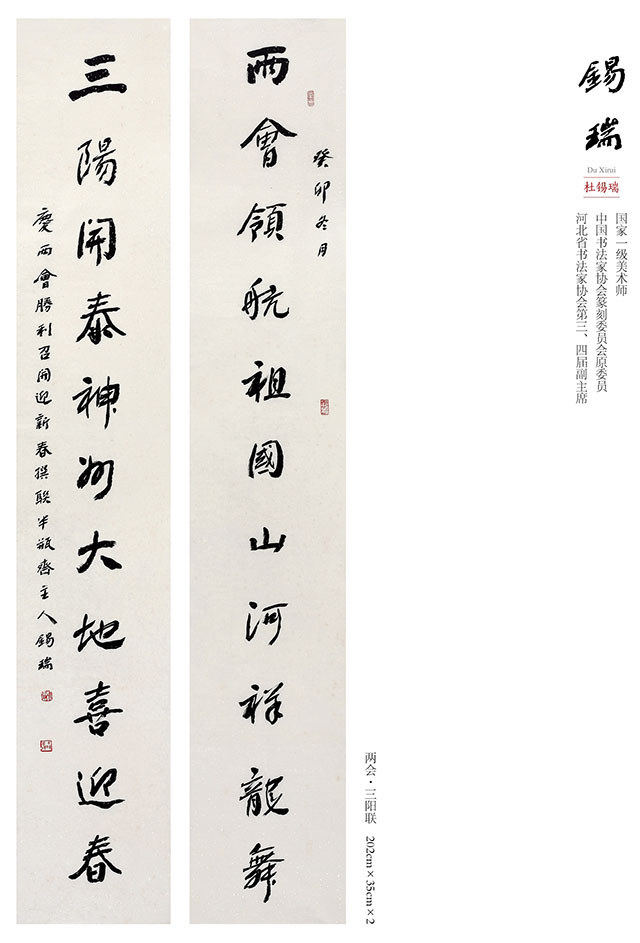 锡瑞
Du Xirui
杜锡瑞
国家一级美术师
中国书法家协会篆刻委员会原委员
河北省书法家协会第三、四届副主席
癸卯冬月
兩會領航祖國山河祥龍舞
三陽開泰神州大地喜迎春
慶兩會勝利召開迎新春撰联半瓶齋主人錫瑞
两会·三阳联 202cm×35cm×2